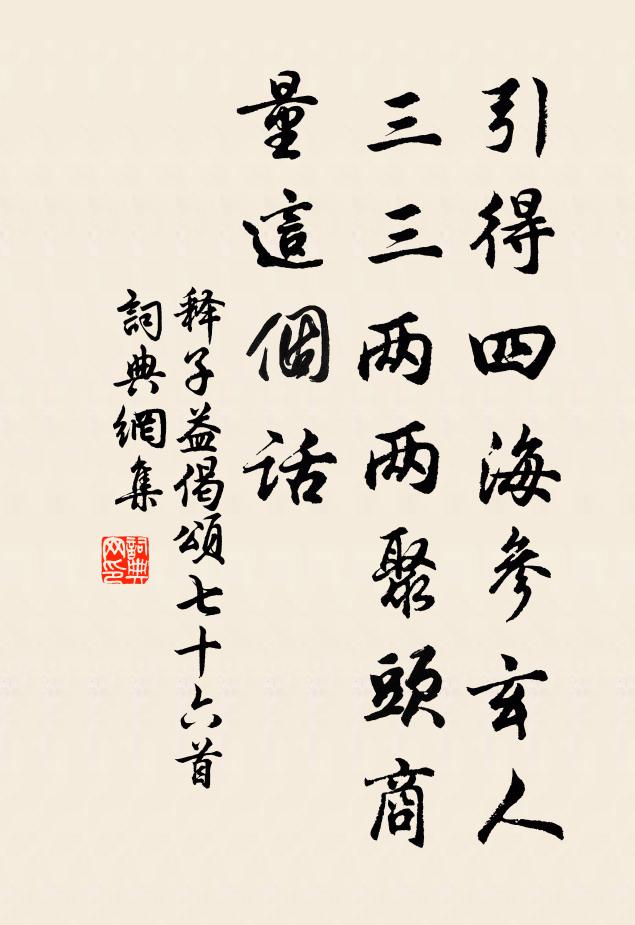 引得四海參玄人
三三两两聚頭商
量這個話
释子益偈頌七十六首
詞典網集
詞典网印